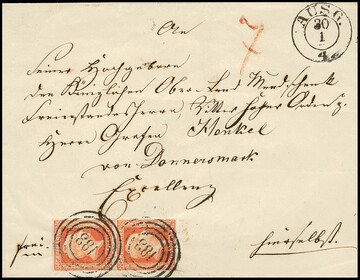 An
AUSG.
30
1
7
Seiner Hochgeboren
den Königlichen Ober Land Mundschenk
Freienstandesherrn, Ritter hoher Orden pp.
Herrn Grafen Henkel
von Donnersmark
Excellenz
frei.
hierselbst.